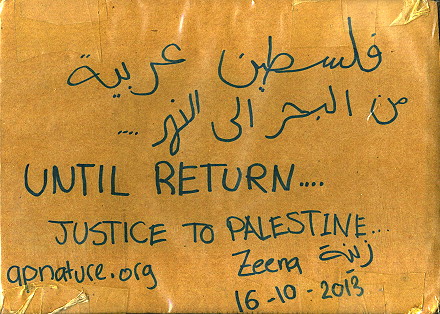 فلسطين عربية
من البحر الى النهر ....
UNTIL RETURN....
JUSTICE TO PALESTINE...
apnature.org
Zeena زينة
16-10-2013